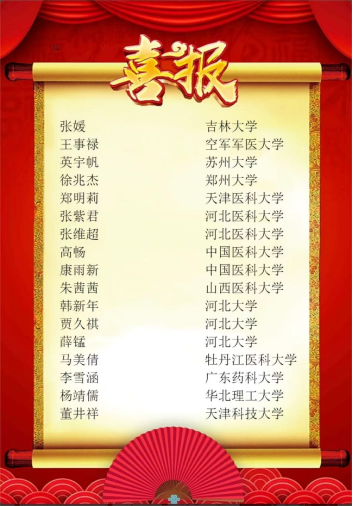 喜报
张媛 吉林大学
王事禄 空军军医大学
英宇帆 苏州大学
徐兆杰 郑州大学
郑明莉 天津医科大学
张紫君 河北医科大学
张维超 河北医科大学
高畅 中国医科大学
康雨新 中国医科大学
朱茜茜 山西医科大学
韩新年 河北大学
贾久祺 河北大学
薛锰 河北大学
马美倩 牡丹江医科大学
李雪涵 广东药科大学
杨靖儒 华北理工大学
董井祥 天津科技大学